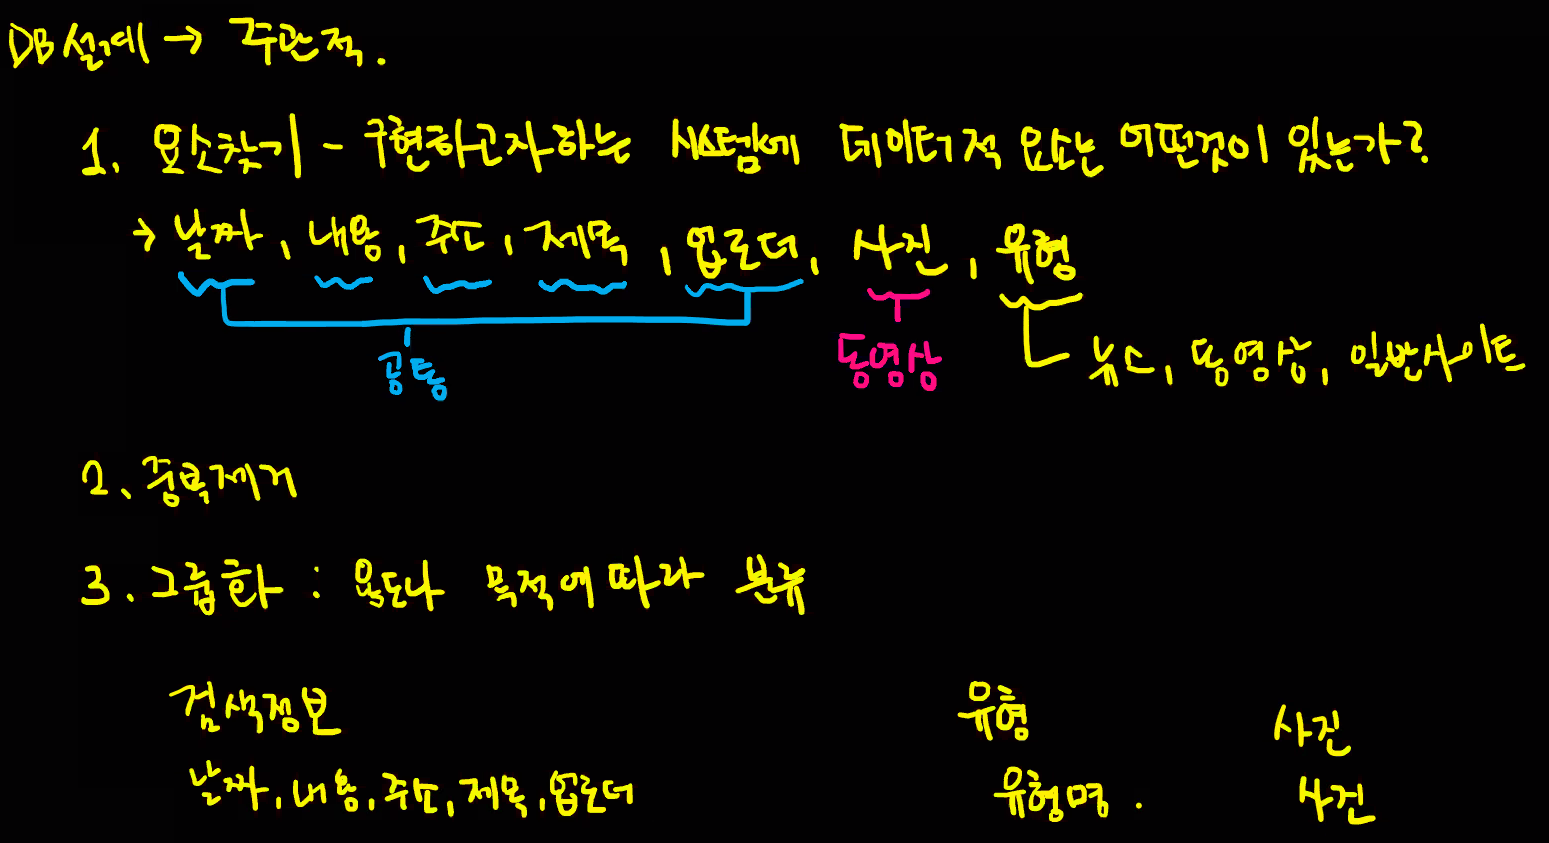 DB설계 → 주관적.
1. 요소찾기 - 구현하고자하는 시스템에 데이터적 요소는 어떤것이 있는가?
→ 날짜, 내용, 주소, 제목, 업로더, 사진, 유형
공통
동영상
뉴스, 동영상, 일반사이트
2. 중복제거
3. 그룹화 : 용도나 목적에 따라 분류
검색정보 유형 사진
날짜, 내용, 주소, 제목, 업로더 유형명. 사진